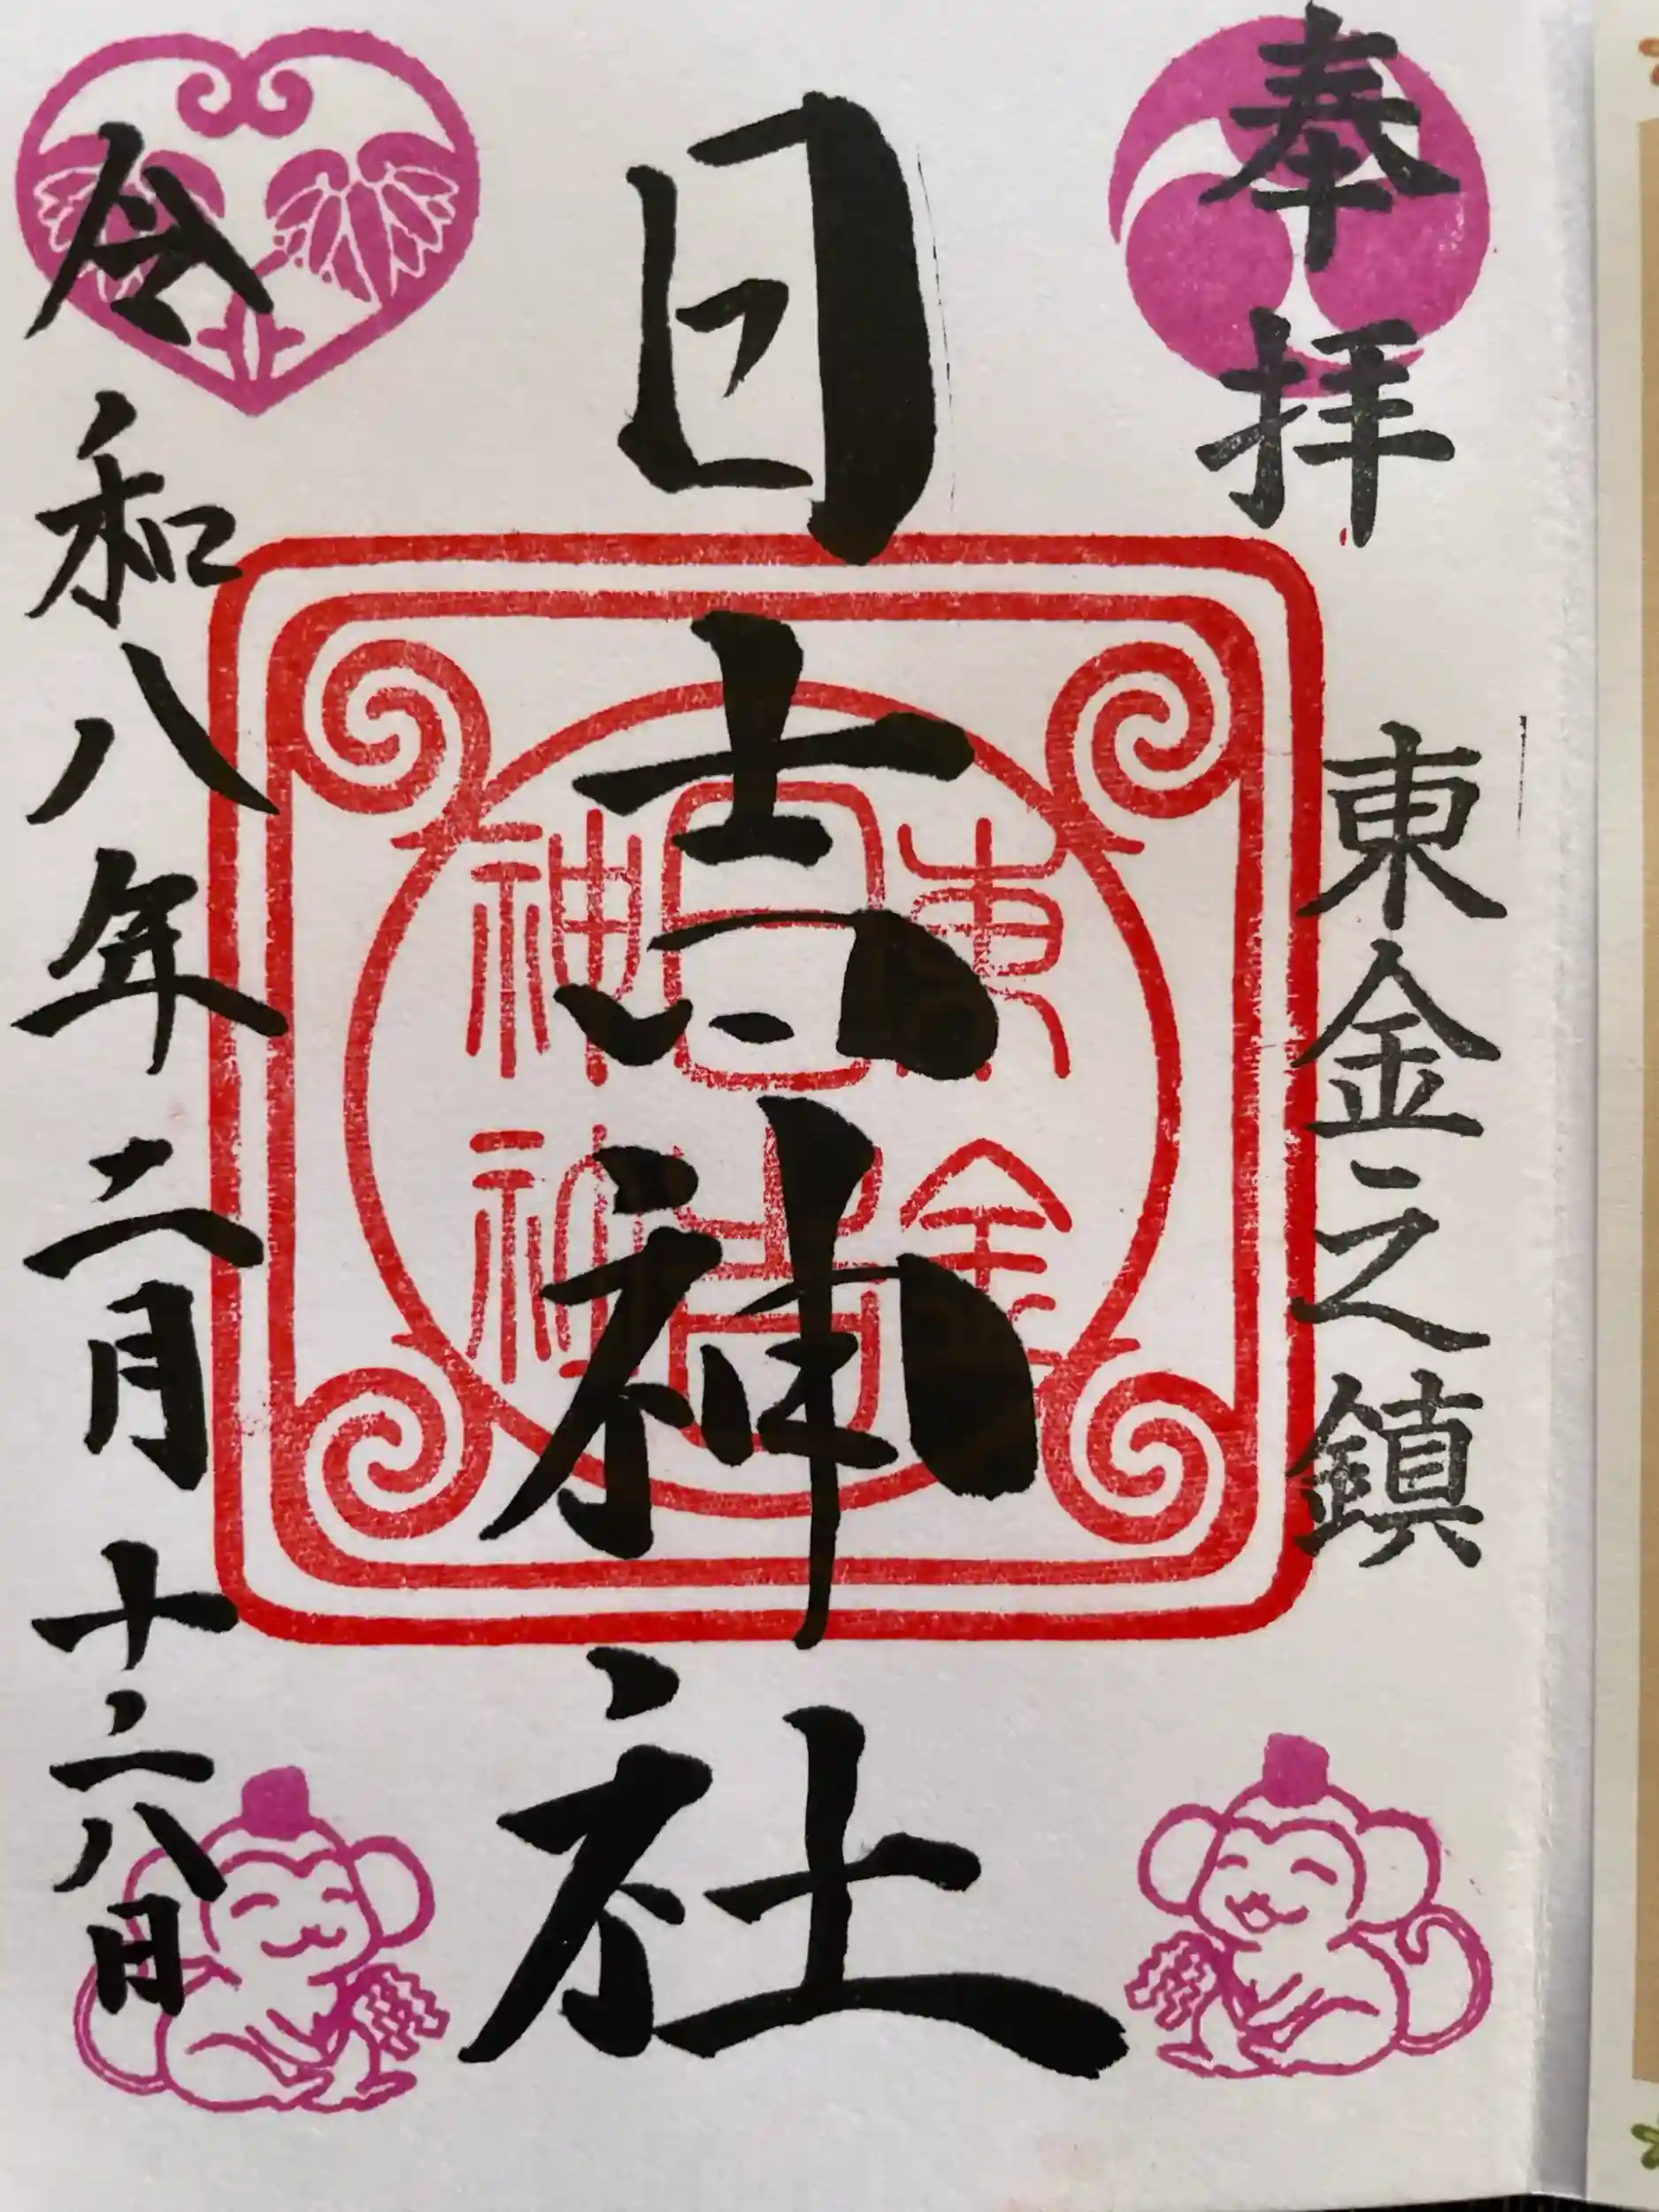 奉拝
東金之鎮
日吉神社
東金
日吉
神社
令和八年二月十二八日